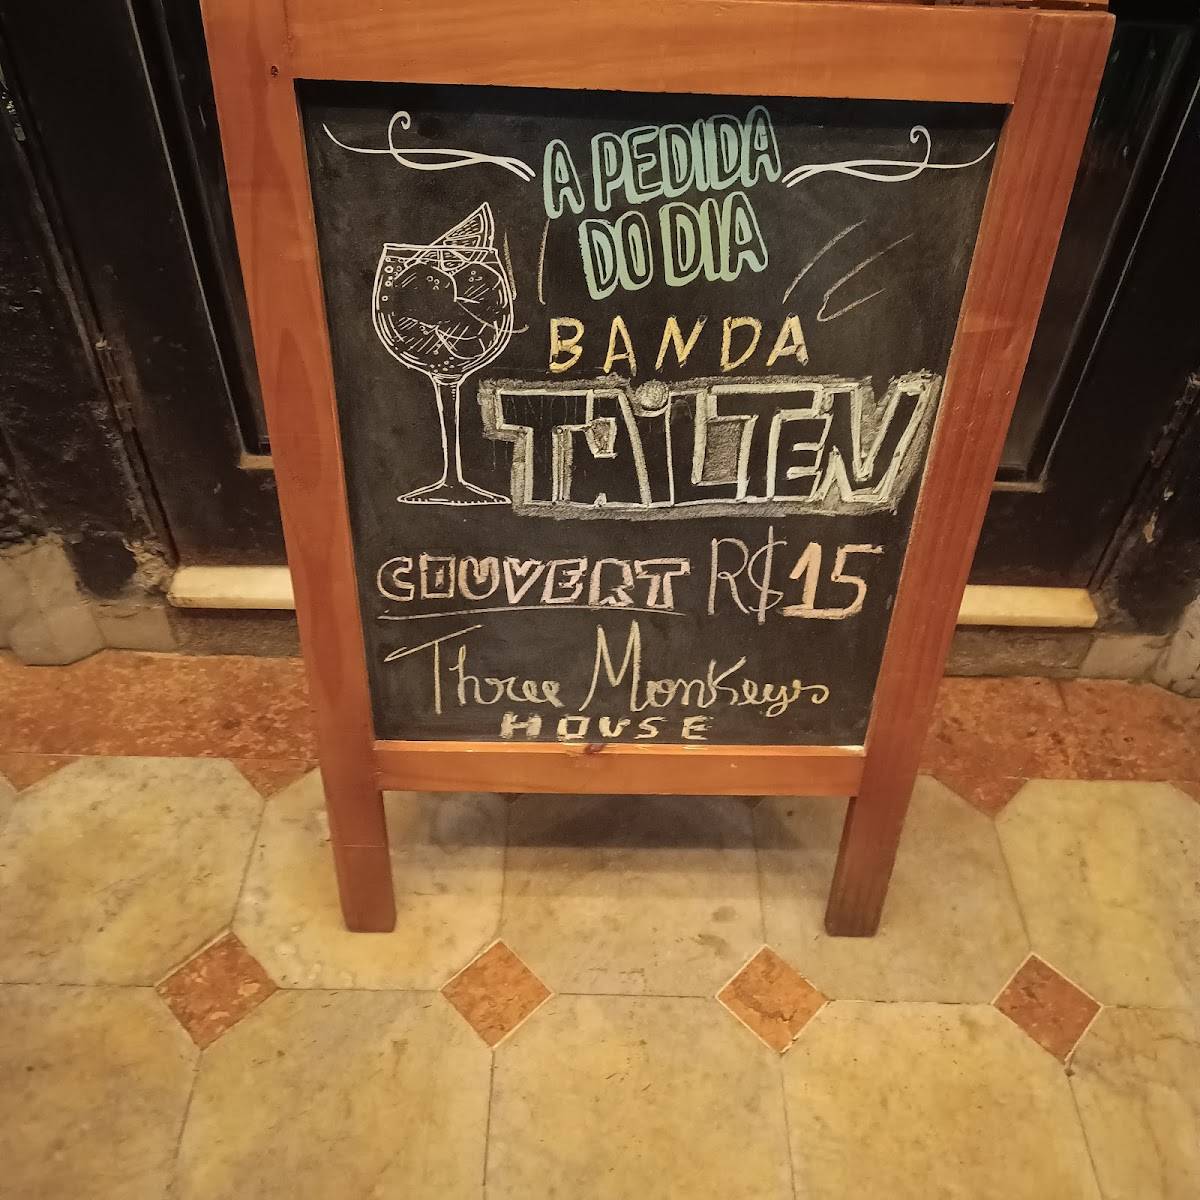 A PEDIDA
DO DIA
BANDA
TAiLTEN
COUVERT R$15
Three Monkeys
HOUSE